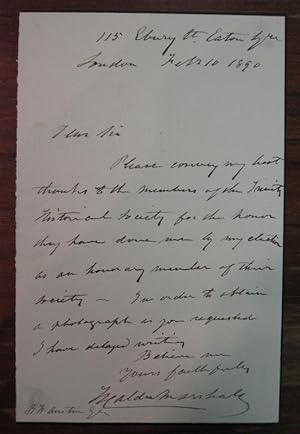 115 Ebury St Eaton Sqre
London Feb 10 1890
Dear Sir
Please convey my best
thanks to the members of the Trinity
Historical Society for the honor
they have done me by my election
as an honorary member of their
Society — In order to obtain
a photograph as you requested
I have delayed writing
Believe me
Yours faithfully
Marshall